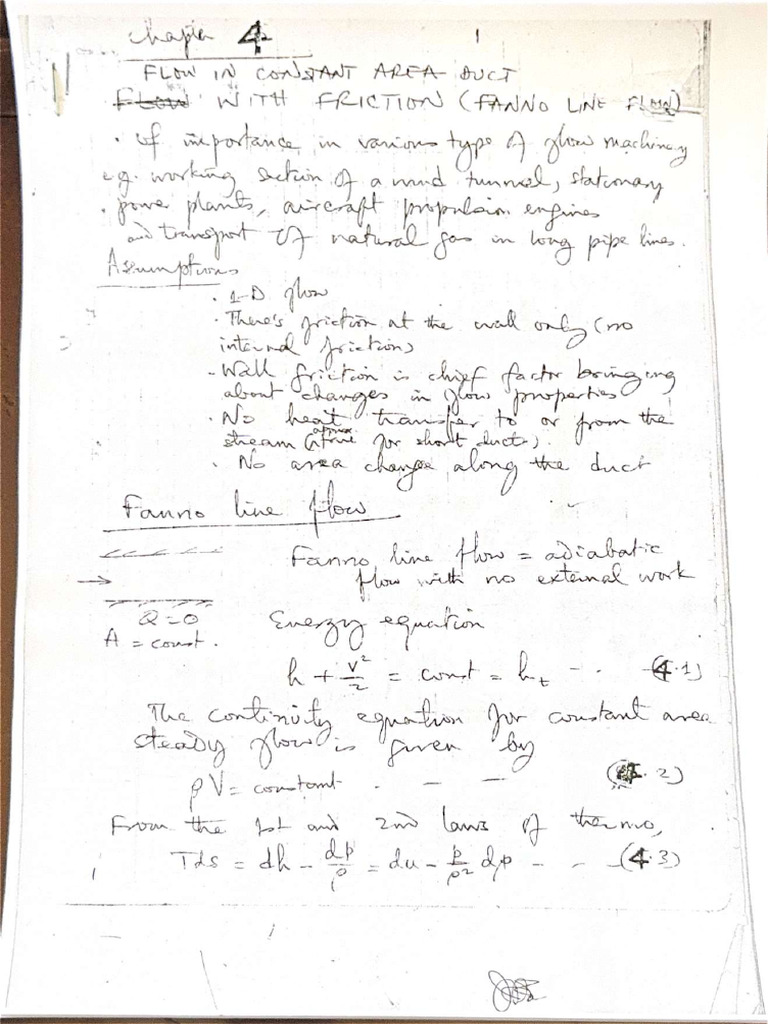 Chapter 4
1
FLOW IN CONSTANT AREA DUCT
FLOW WITH FRICTION (FANNO LINE FLOW)
. Of importance in various type of flow machinery
e.g. working section of a wind tunnel, stationary
. power plants, aircraft propulsion engines
and transport of natural gas in long pipe lines.
Assumptions
. 1-D flow
. There's friction at the wall only (no
internal friction)
- Wall friction is chief factor bringing
about changes in flow properties
. No heat transfer to or from the
stream (approx true for short ducts).
. No area change along the duct
Fanno line flow
Fanno line flow = adiabatic
flow with no external work
Q = 0
A = const.
Energy equation
h + V²/2 = const = h_t - - - (4.1)
The continuity equation for constant area
steady flow is given by
ρV = constant . - - (4.2)
From the 1st and 2nd laws of thermo,
Tds = dh - dp/ρ = du - p/ρ² dρ - - - (4.3)